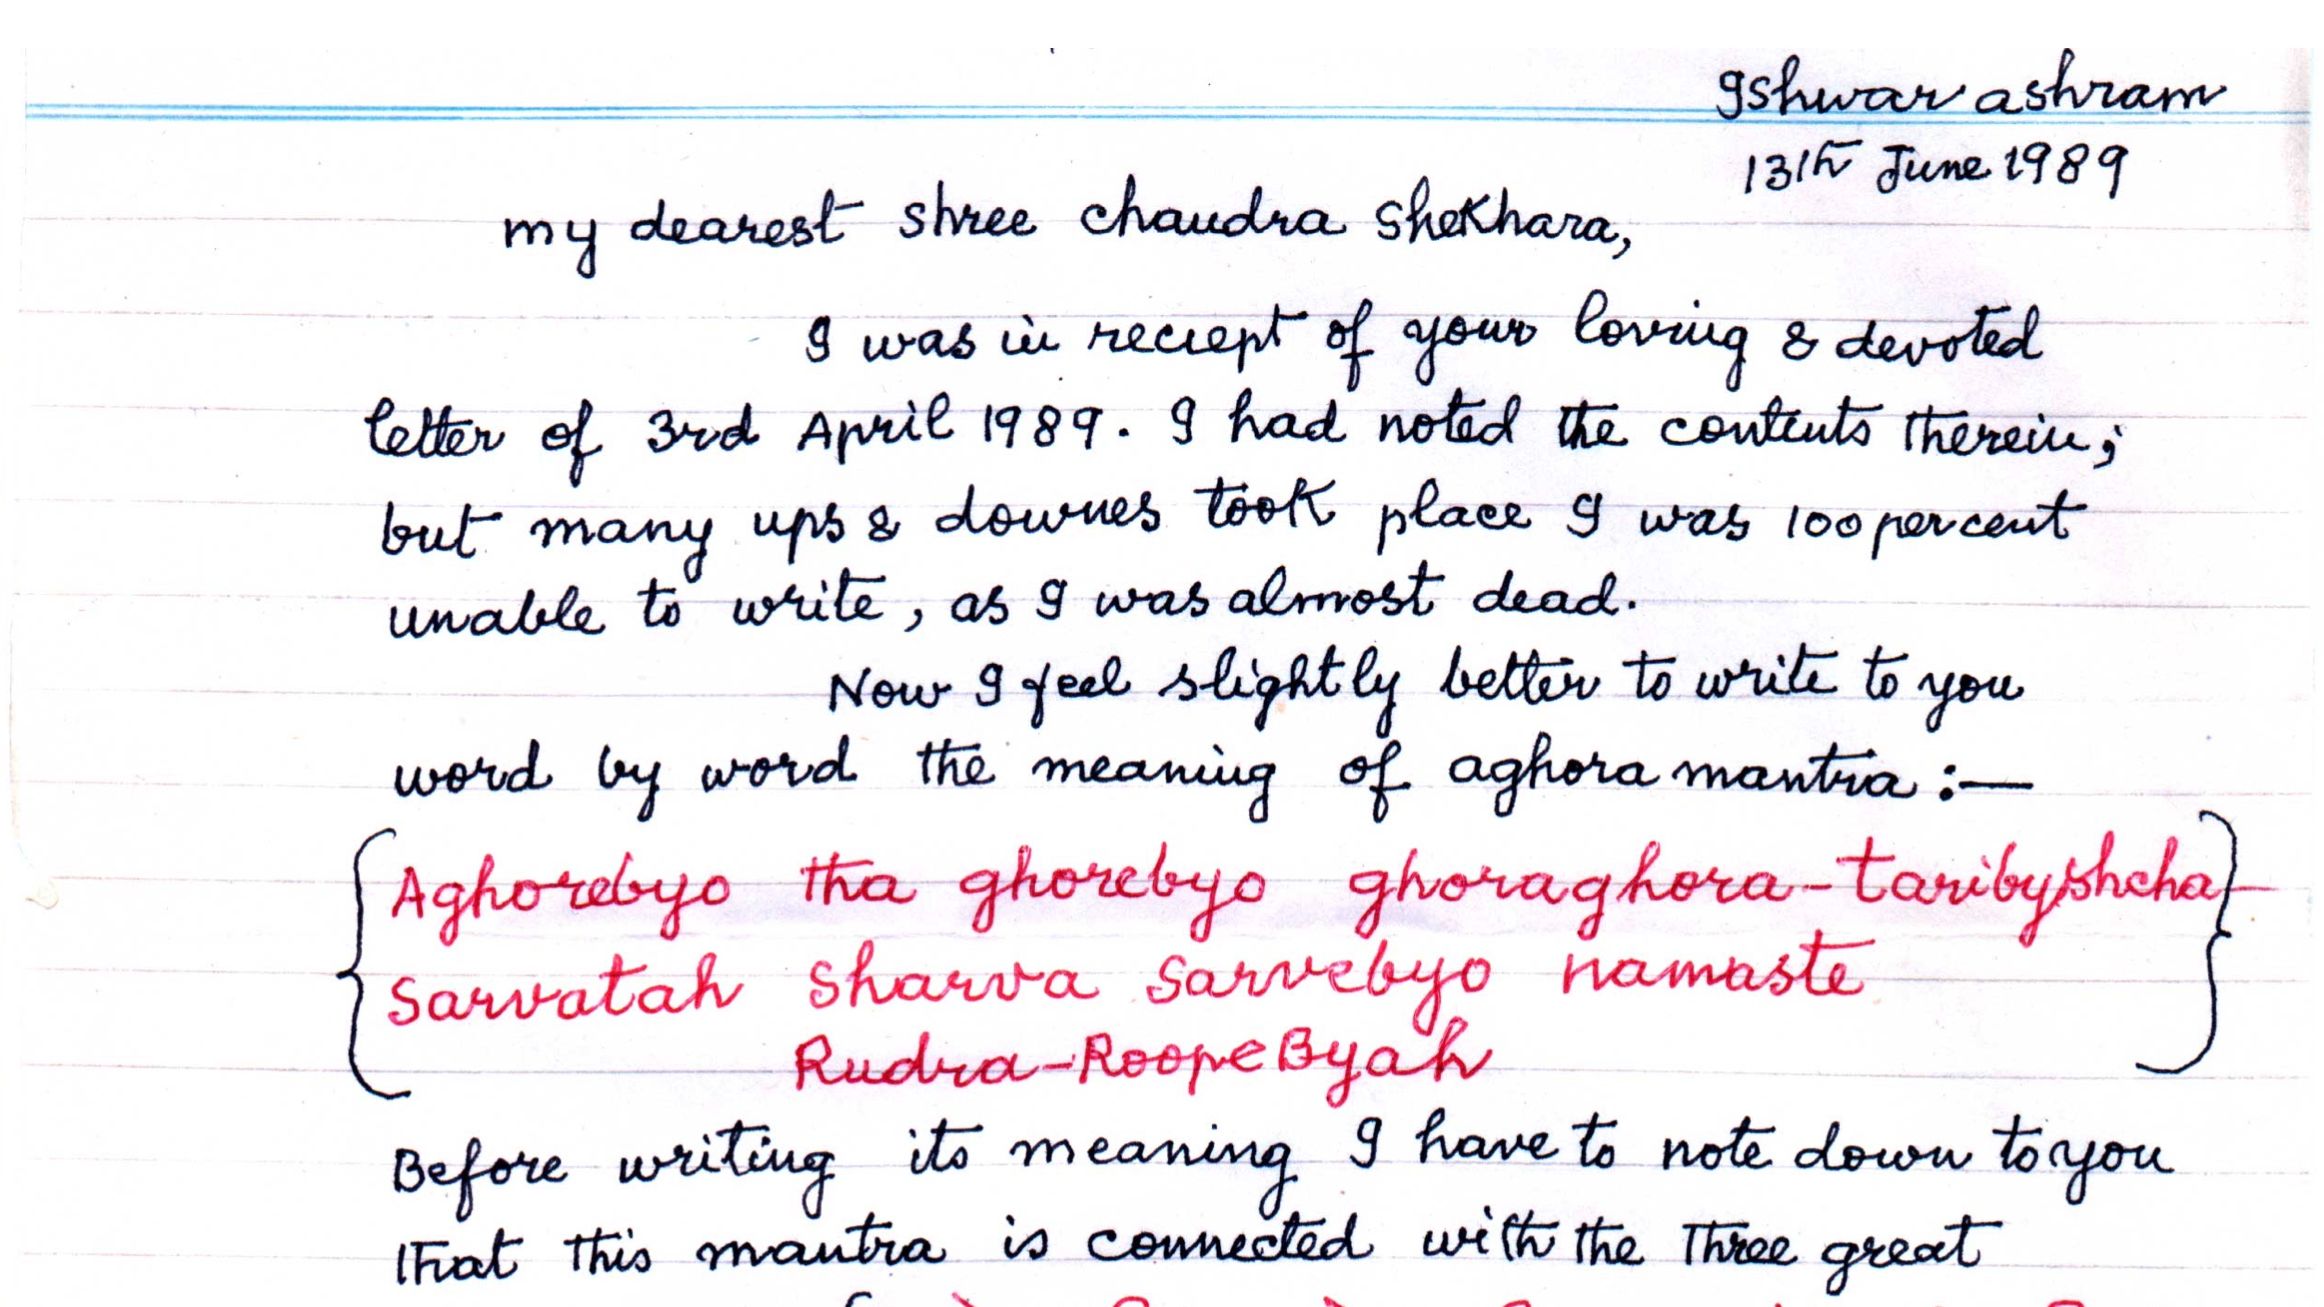 Ishwar ashram
13th June 1989
my dearest shree chandra shekhara,
I was in reciept of your loving & devoted
letter of 3rd April 1989. I had noted the contents therein;
but many ups & downes took place I was 100 percent
unable to write, as I was almost dead.
Now I feel slightly better to write to you
word by word the meaning of aghora mantra :—
{Aghorebyo tha ghorebyo ghoraghora-taribyshcha-
Sarvatah Sharva Sarvebyo namaste
Rudra-RoopeByah}
Before writing its meaning I have to note down to you
that this mantra is connected with the three great